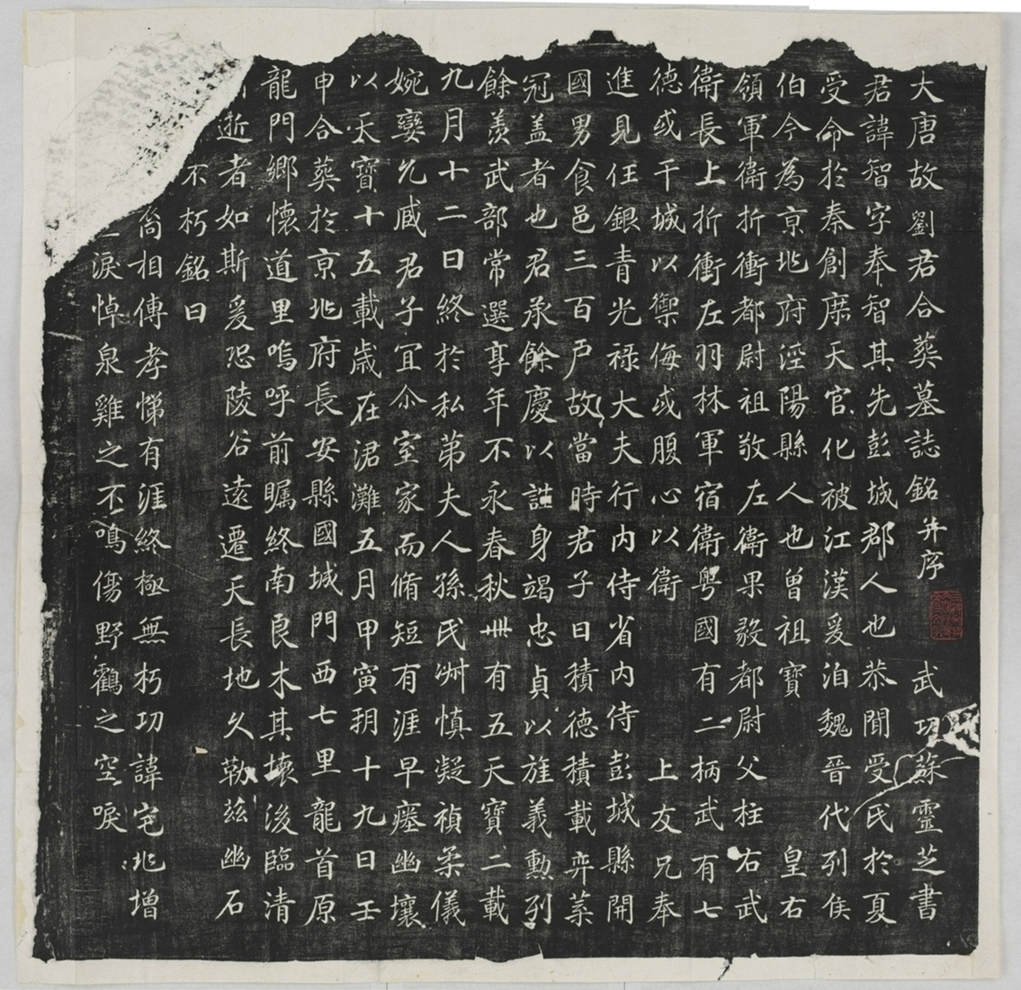 大唐故劉君合葬墓誌銘并序 武功蘇靈芝書
君諱智字奉智其先彭城郡人也恭聞受氏於夏
受命於秦創庶天官化被江漢爰泊魏晉代列侯
伯今為京兆府涇陽縣人也曾祖寶 皇右
領軍衛折衝都尉祖敬左衛果毅都尉父柱右武
衛長上折衝左羽林軍宿衛粵國有二柄武有七
德或干城以禦侮或腹心以衛 上友兄奉
進見任銀青光祿大夫行內侍省內侍彭城縣開
國男食邑三百戶故當時君子曰積德積載弈葉
冠蓋者也君承餘慶以謹身竭忠貞以旌義勳列
餘羨武部常選享年不永春秋卌有五天寶二載
九月十二日終於私第夫人孫氏淑慎凝禎柔儀
婉孌允臧君子宜尒室家而脩短有涯早瘞幽壤
以天寶十五載歲在涒灘五月甲寅朔十九日壬
申合葬於京兆府長安縣國城門西七里龍首原
龍門鄉懷道里嗚呼前矚終南良木其壞後臨清
逝者如斯爰恐陵谷遠遷天長地久勒茲幽石
不朽銘曰
相傳孝悌有涯終極無朽功諱宅兆增
淚悼泉雞之不鳴傷野鶴之空唳